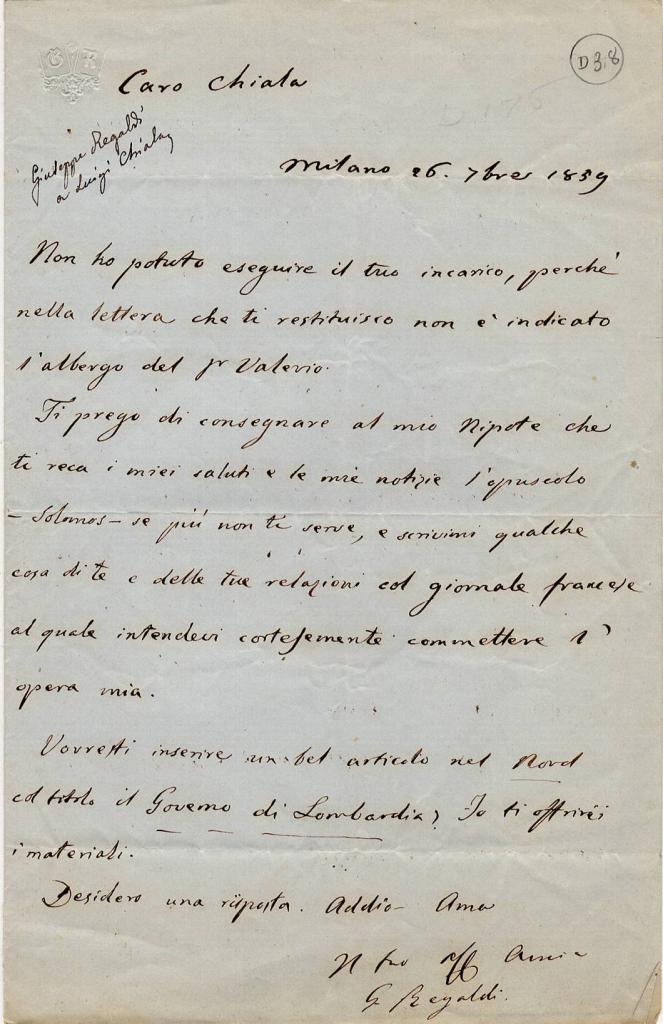 G R
D 3,8
Caro Chiala
D 175
Giuseppe Regaldi
a Luigi Chiala
Milano 26. 7bre 1859
Non ho potuto eseguire il tuo incarico, perché
nella lettera che ti restituisco non è indicato
l'albergo del Sr Valerio.
Ti prego di consegnare al mio Nipote che
ti reca i miei saluti e le mie notizie l'opuscolo
- Solomos - se più non ti serve, e scrivimi qualche
cosa di te e delle tue relazioni col giornale francese
al quale intendevi cortesemente commettere l'
opera mia.
Vorresti inserire un bel articolo nel Nord
col titolo il Governo di Lombardia? Io ti offrirei
i materiali.
Desidero una risposta. Addio - Ama
Il tuo aff Amico
G Regaldi.